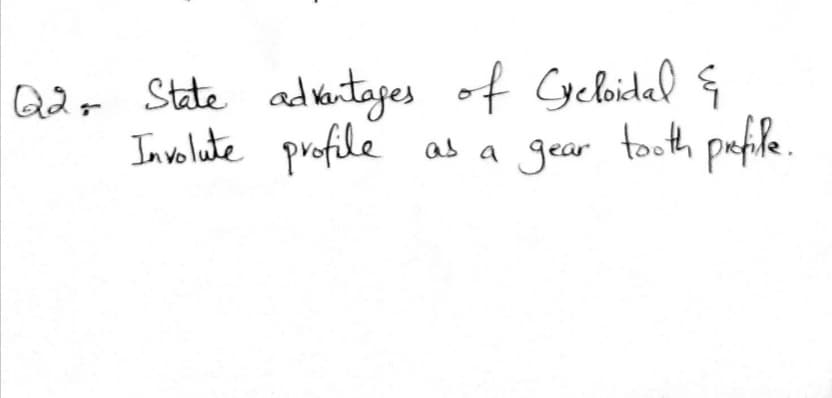 Q2- State advantages of Cycloidal &
Involute profile as a gear tooth profile.